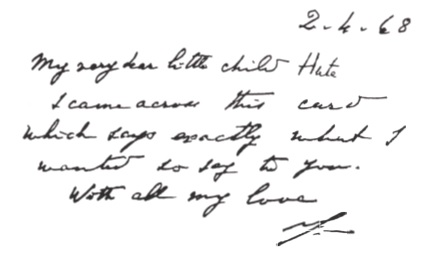 2-4-68
My very dear little child Huta
I came across this card
which says exactly what I
wanted to say to you.
With all my love